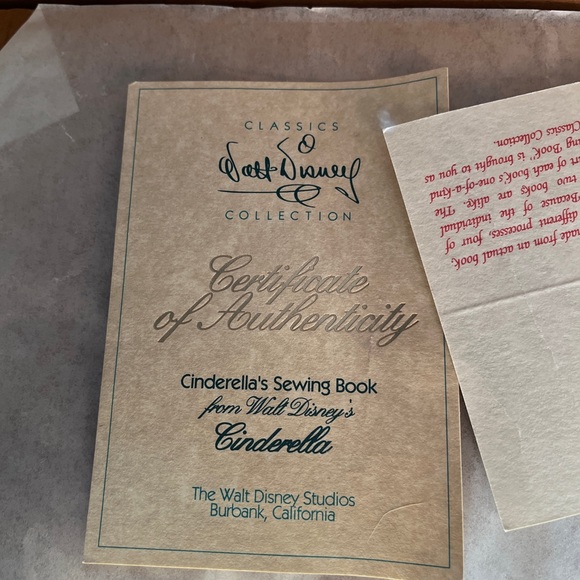 CLASSICS
Walt Disney
COLLECTION
Certificate
of Authenticity
Cinderella's Sewing Book
from Walt Disney's
Cinderella
The Walt Disney Studios
Burbank, California
made from an actual book,
different processes, four of
"Because of the individual
two books are alike. The
of each book's one-of-a-kind
Book" is brought to you as
Classics Collection.